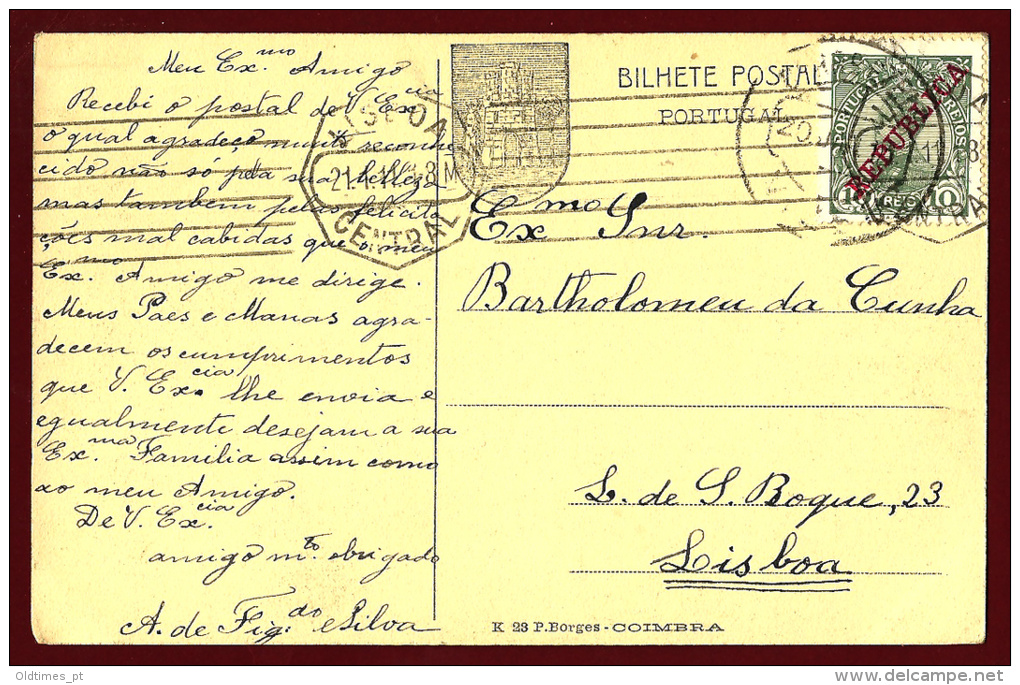 Meu Ex.mo Amigo
Recebi o postal de V. Excia
o qual agradeço muito reconhe
cido não só pela sua belleza
mas tambem pelas felicita
ções mal cabidas que o meu
Ex.mo Amigo me dirige.
Meus Paes e Manas agra-
decem os cumprimentos
que V. Ex.cia lhe envia e
egualmente desejam a sua
Ex.ma Familia assim como
ao meu Amigo.
De V. Ex.cia
amigo m.to obrigado
A. de Fig.do e Silva
BILHETE POSTAL
PORTUGAL
LISBOA
21.1.11 8 M
CENTRAL
PORTUGAL
REIS
REPUBLICA
10 REIS 10
Ex.mo Snr.
Bartholomeu da Cunha
L. de S. Roque, 23
Lisboa
K 23 P. Borges - COIMBRA
Oldtimes_pt
delcampe.net